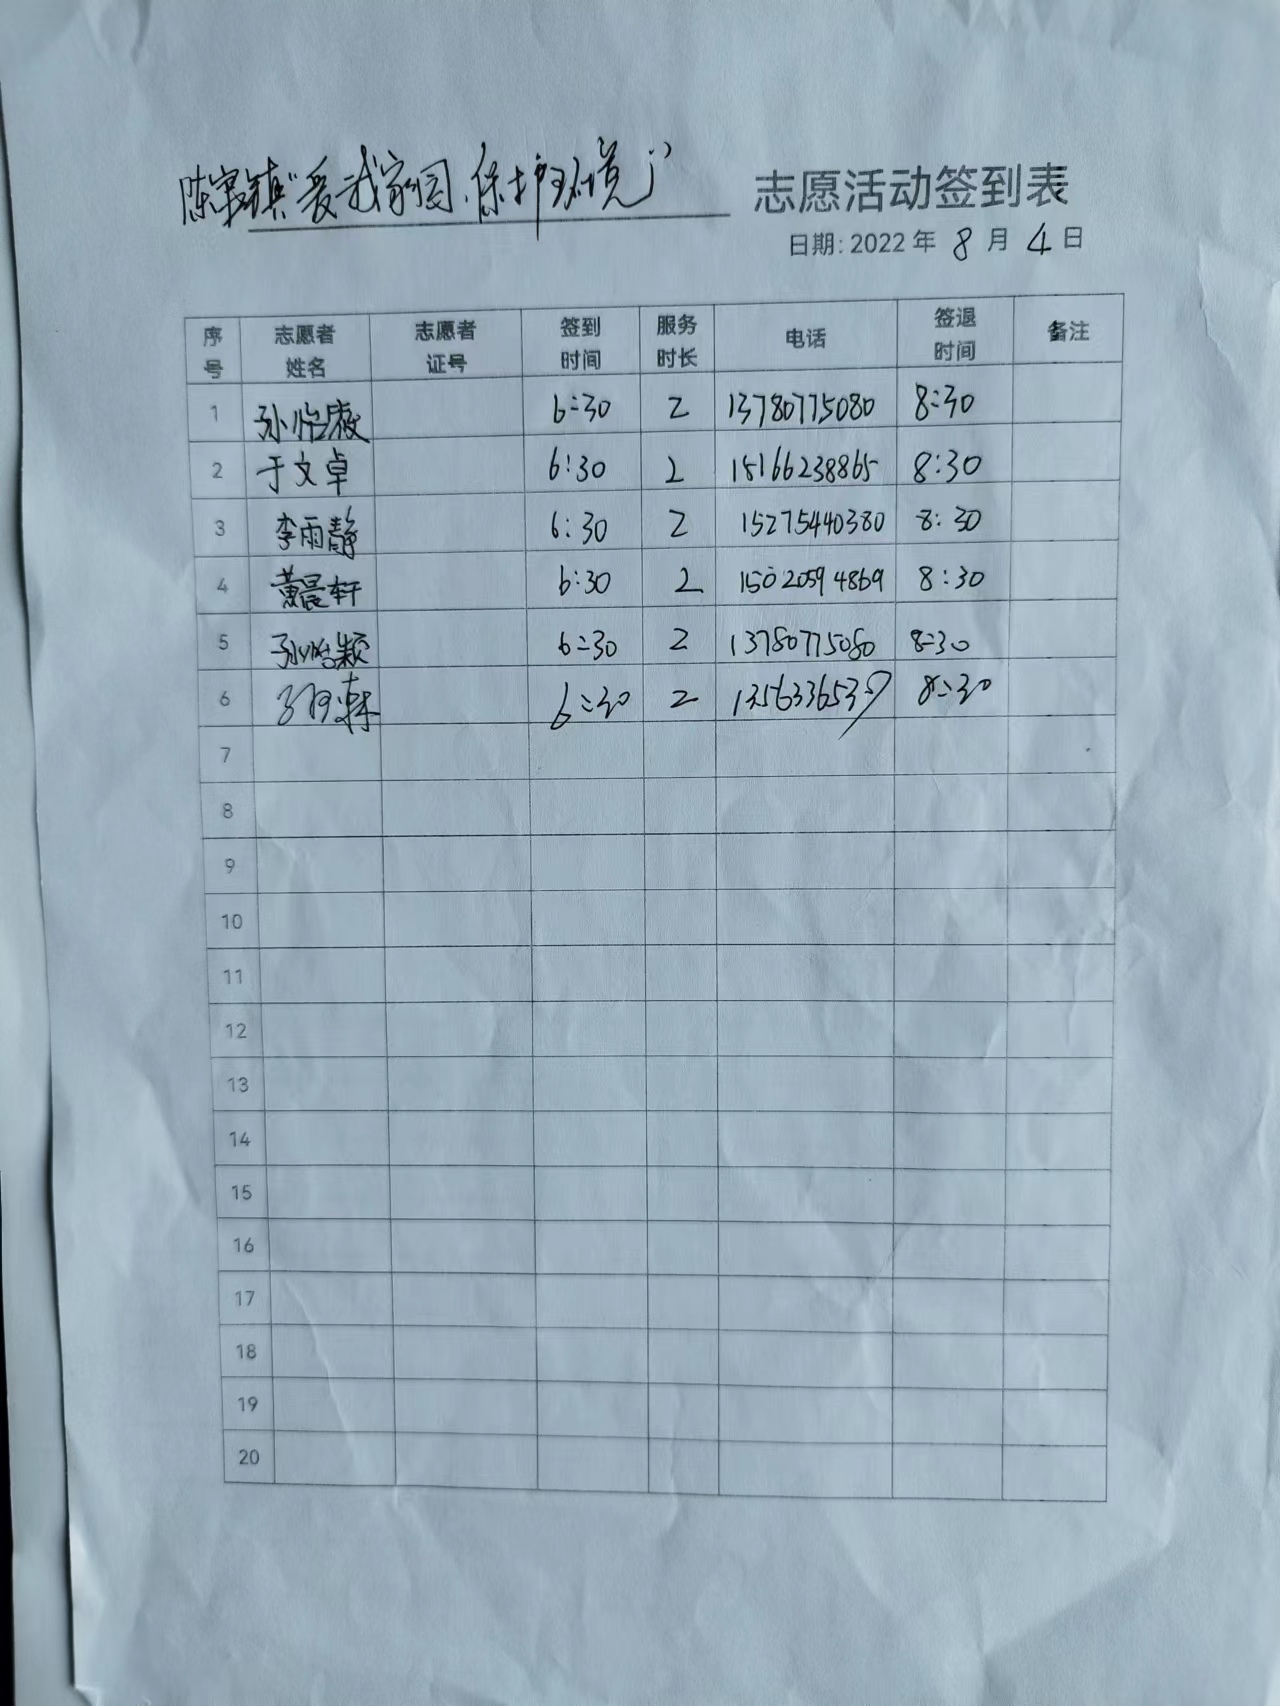 陈家镇“爱我家园.保护环境” 志愿活动签到表
日期: 2022 年 8 月 4 日
序号 志愿者姓名 志愿者证号 签到时间 服务时长 电话 签退时间 备注
1 孙怡 6:30 2 13780775080 8:30
2 于文卓 6:30 2 15166238865 8:30
3 李雨静 6:30 2 15275440380 8:30
4 黄晨轩 6:30 2 15020594869 8:30
5 孙怡颖 6:30 2 13780775080 8:30
6 6:30 2 8:30
7
8
9
10
11
12
13
14
15
16
17
18
19
20